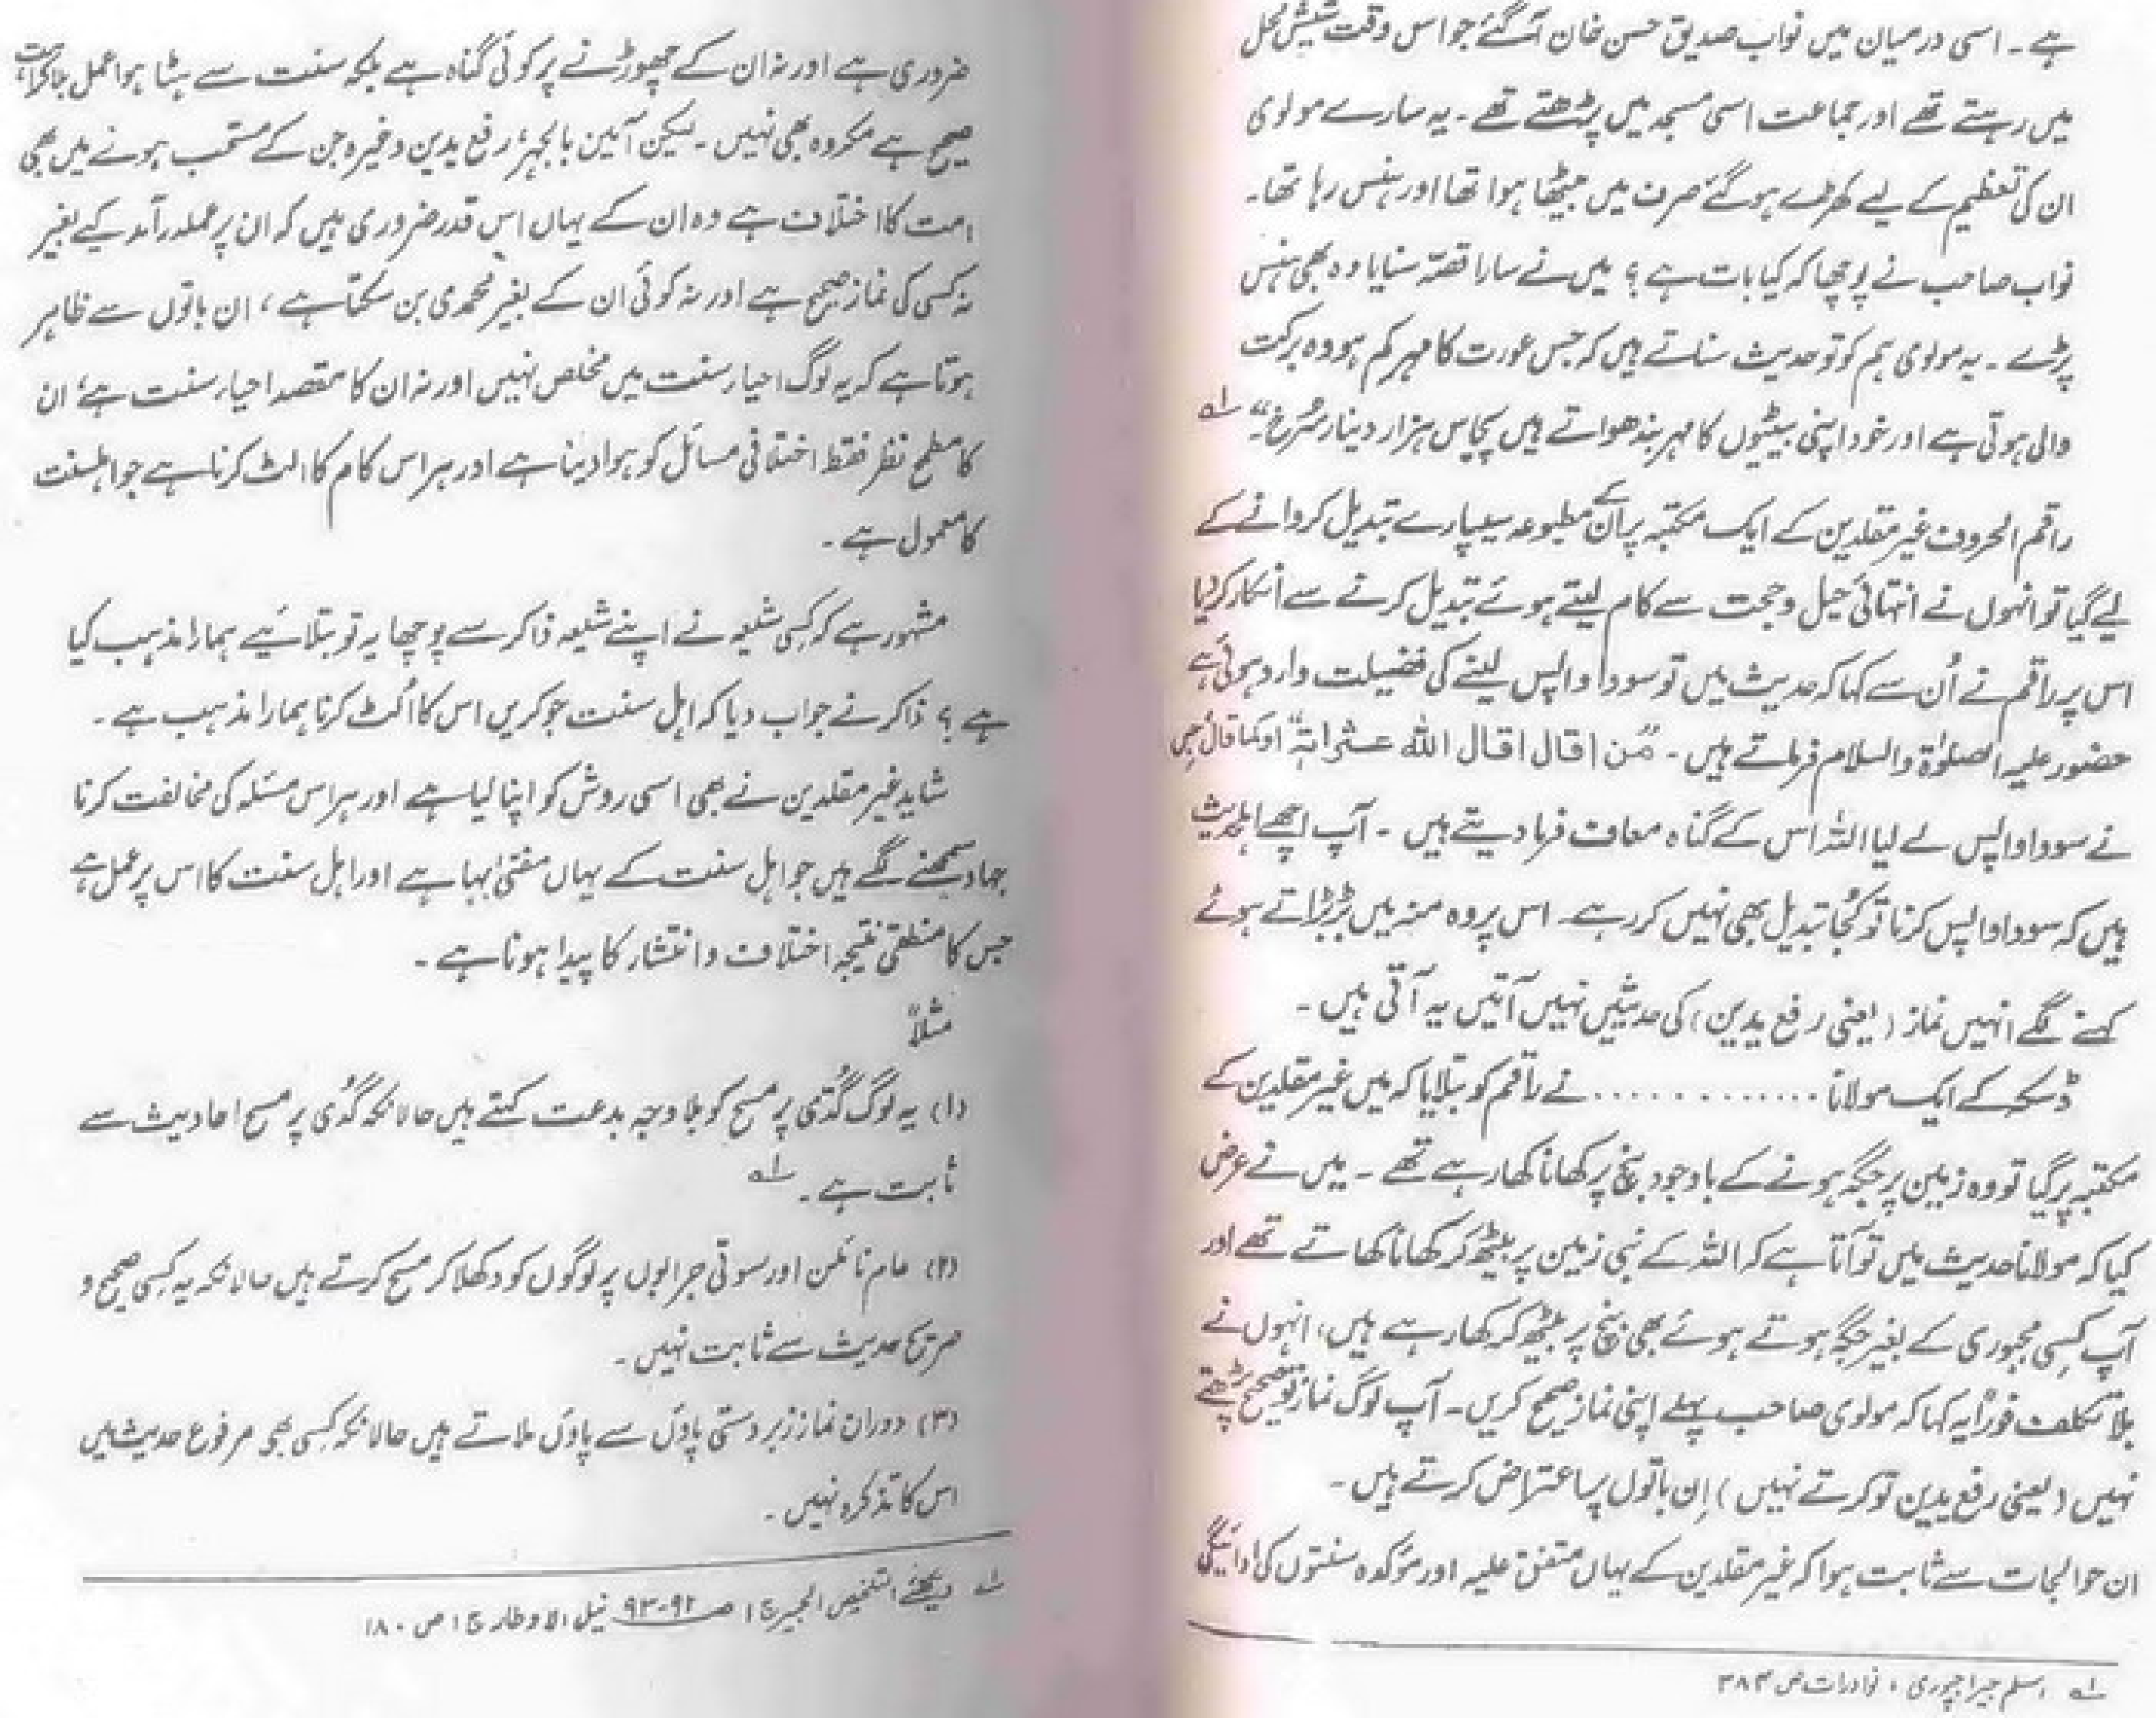 ہے ۔ اسی درمیان میں نواب صدیق حسن خان آگئے جو اس وقت شیش محل
میں رہتے تھے اور جماعت اسی مسجد میں پڑھتے تھے ۔ یہ سارے مولوی
ان کی تعظیم کے لیے کھڑے ہوگئے صرف میں بیٹھا ہوا تھا اور ہنس رہا تھا ۔
نواب صاحب نے پوچھا کہ کیا بات ہے ؟ میں نے سارا قصّہ سنایا وہ بھی ہنس
پڑے ۔ یہ مولوی ہم کو تو حدیث سناتے ہیں کہ جس عورت کا مہر کم ہو وہ برکت
والی ہوتی ہے اور خود اپنی بیٹیوں کا مہر بندھواتے ہیں پچاس ہزار دینار سُرخ ۔“ ١ه
راقم الحروف غیر مقلدین کے ایک مکتبہ پر اُن کے مطبوعہ سیپارے تبدیل کروانے کے
لیے گیا تو انہوں نے انتہائی حیل و حجت سے کام لیتے ہوئے تبدیل کرنے سے انکار کردیا
اس پر راقم نے اُن سے کہا کہ حدیث میں تو سودا واپس لینے کی فضیلت وارد ہوئی ہے
حضور علیہ الصلوٰۃ والسلام فرماتے ہیں ۔ ”من اقال اقال اللہ عثراتہ“ اوکما قال جس
نے سودا واپس لے لیا اللہ اس کے گناہ معاف فرما دیتے ہیں ۔ آپ اچھے اہلحدیث
ہیں کہ سودا واپس کرنا تو کُجا تبدیل بھی نہیں کر رہے ۔ اس پر وہ منہ میں بڑبڑاتے ہوئے
کہنے لگے انہیں نماز (یعنی رفع یدین) کی حدیثیں نہیں آتیں یہ آتی ہیں ۔
ڈسکہ کے ایک مولانا ............. نے راقم کو بتلایا کہ میں غیر مقلدین کے
مکتبہ پر گیا تو وہ زمین پر جگہ ہونے کے باوجود بنچ پر کھانا کھا رہے تھے ۔ میں نے عرض
کیا کہ مولانا حدیث میں تو آتا ہے کہ اللہ کے نبی زمین پر بیٹھ کر کھانا کھاتے تھے اور
آپ کسی مجبوری کے بغیر جگہ ہوتے ہوئے بھی بنچ پر بیٹھ کر کھا رہے ہیں ، انہوں نے
بلا تکلف فوراً یہ کہا کہ مولوی صاحب پہلے اپنی نماز صحیح کریں ۔ آپ لوگ نماز تو صحیح پڑھتے
نہیں (یعنی رفع یدین تو کرتے نہیں) اِن باتوں پر اعتراض کرتے ہیں ۔
ان حوالجات سے ثابت ہوا کہ غیر مقلدین کے یہاں متفق علیہ اور مؤکدہ سنتوں کی ادائیگی
١ه اسلم جیراجپوری ، نوادرات ص ۳۸۳
ضروری ہے اور نہ ان کے چھوڑنے پر کوئی گناہ ہے بلکہ سنت سے ہٹا ہوا عمل بلاکراہت
صحیح ہے مکروہ بھی نہیں ۔ لیکن آمین بالجہر، رفع یدین وغیرہ جن کے مستحب ہونے میں بھی
امت کا اختلاف ہے وہ ان کے یہاں اس قدر ضروری ہیں کہ ان پر عملدرآمد کیے بغیر
نہ کسی کی نماز صحیح ہے اور نہ کوئی ان کے بغیر محمدی بن سکتا ہے ، ان باتوں سے ظاہر
ہوتا ہے کہ یہ لوگ احیاء سنت میں مخلص نہیں اور نہ ان کا مقصد احیاء سنت ہے ؛ ان
کا مطمح نظر فقط اختلافی مسائل کو ہوا دینا ہے اور ہر اس کام کا الٹ کرنا ہے جو اہلسنت
کا معمول ہے ۔
مشہور ہے کہ کسی شیعہ نے اپنے شیعہ ذاکر سے پوچھا یہ تو بتلائیے ہمارا مذہب کیا
ہے ؟ ذاکر نے جواب دیا کہ اہل سنت جو کریں اس کا اُلٹ کرنا ہمارا مذہب ہے ۔
شاید غیر مقلدین نے بھی اسی روش کو اپنا لیا ہے اور ہر اس مسئلہ کی مخالفت کرنا
جہاد سمجھنے لگے ہیں جو اہل سنت کے یہاں مفتیٰ بہا ہے اور اہل سنت کا اس پر عمل ہے
جس کا منطقی نتیجہ اختلاف و انتشار کا پیدا ہونا ہے ۔
مثلاً
(۱) یہ لوگ گُدّی پر مسح کو بلا وجہ بدعت کہتے ہیں حالانکہ گُدّی پر مسح احادیث سے
ثابت ہے ۔ ١ه
(۲) عام نائلن اور سوتی جرابوں پر لوگوں کو دکھلا کر مسح کرتے ہیں حالانکہ یہ کسی صحیح و
صریح حدیث سے ثابت نہیں ۔
(۳) دوران نماز زبردستی پاؤں سے پاؤں ملاتے ہیں حالانکہ کسی بھی مرفوع حدیث میں
اس کا تذکرہ نہیں ۔
١ه دیکھئے التلخیص الحبیر ج ۱ ص ۹۲-۹۳ نیل الاوطار ج ۱ ص ۱۸۰